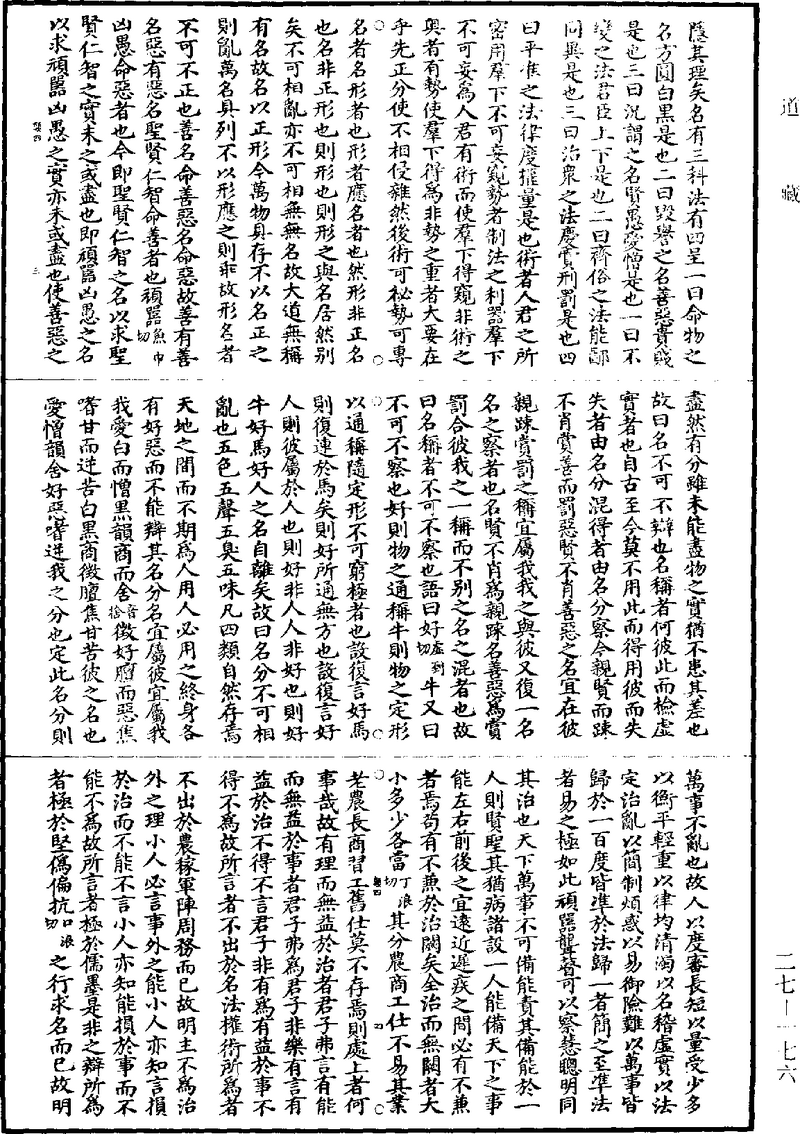 道藏
隱其理矣名有三科法有四呈一曰命物之
名方圓白黑是也二曰毀譽之名善惡貴賤
是也三曰況謂之名賢愚愛憎是也一曰不
變之法君臣上下是也二曰齊俗之法能鄙
同異是也三曰治衆之法慶賞刑罰是也四
曰平准之法律度權量是也術者人君之所
密用羣下不可妄窺勢者制法之利器羣下
不可妄爲人君有術而使羣下得窺非術之
奧者有勢使羣下得爲非勢之重者大要在
乎先正分使不相侵雜然後術可秘勢可專
名者名形者也形者應名者也然形非正名
也名非正形也則形也則形之與名居然別
矣不可相亂亦不可相無無名故大道無稱
有名故名以正形今萬物具存不以名正之
則亂萬名具列不以形應之則乖故形名者
不可不正也善名命善惡名命惡故善有善
名惡有惡名聖賢仁智命善者也頑嚚魚巾切
凶愚命惡者也今即聖賢仁智之名以求聖
賢仁智之實未之或盡也即頑嚚凶愚之名
以求頑嚚凶愚之實亦未或盡也使善惡之
三
盡然有分雖未能盡物之實猶不患其差也
故曰名不可不辯也名稱者何彼此而檢虛
實者也自古至今莫不用此而得用彼而失
失者由名分混得者由名分察今親賢而踈
不肖賞善而罰惡賢不肖善惡之名宜在彼
親踈賞罰之稱宜屬我我之與彼又復一名
名之察者也名賢不肖爲親踈名善惡爲賞
罰合彼我之一稱而不別之名之混者也故
曰名稱者不可不察也語曰好虛到切牛又曰
不可不察也好則物之通稱牛則物之定形
以通稱隨定形不可窮極者也設復言好馬
則復連於馬矣則好所通無方也設復言好
人則彼屬於人也則好非人人非好也則好
牛好馬好人之名自離矣故曰名分不可相
亂也五色五聲五臭五味凡四類自然存焉
天地之間而不期爲人用人必用之終身各
有好惡而不能辯其名分名宜屬彼宜屬我
我愛白而憎黑韻商而舍音捨徵好膻而惡焦
嗜甘而逆苦白黑商徵膻焦甘苦彼之名也
愛憎韻舍好惡嗜逆我之分也定此名分則
萬事不亂也故人以度審長短以量受少多
以衡平輕重以律均清濁以名稽虛實以法
定治亂以簡制煩惑以易御險難以萬事皆
歸於一百度皆準於法歸一者簡之至準法
者易之極如此頑嚚聾瞽可以察慧聰明同
其治也天下萬事不可備能責其備能於一
人則賢聖其猶病諸設一人能備天下之事
能左右前後之宜遠近遲疾之間必有不兼
者焉苟有不兼於治闕矣全治而無闕者大
小多少各當丁浪切其分農商工仕不易其業
老農長商習工舊仕莫不存焉則處上者何
事哉故有理而無益於治者君子弗言有能
而無益於事者君子弗爲君子非樂有言有
益於治不得不言君子非有爲有益於事不
得不爲故所言者不出於名法權術所爲者
不出於農稼軍陣周務而已故明主不爲治
外之理小人必言事外之能小人亦知言損
於治而不能不言小人亦知能損於事而不
能不爲故所言者極於儒墨是非之辯所爲
者極於堅僞偏抗口浪切之行求名而已故明
四
二七—一七六